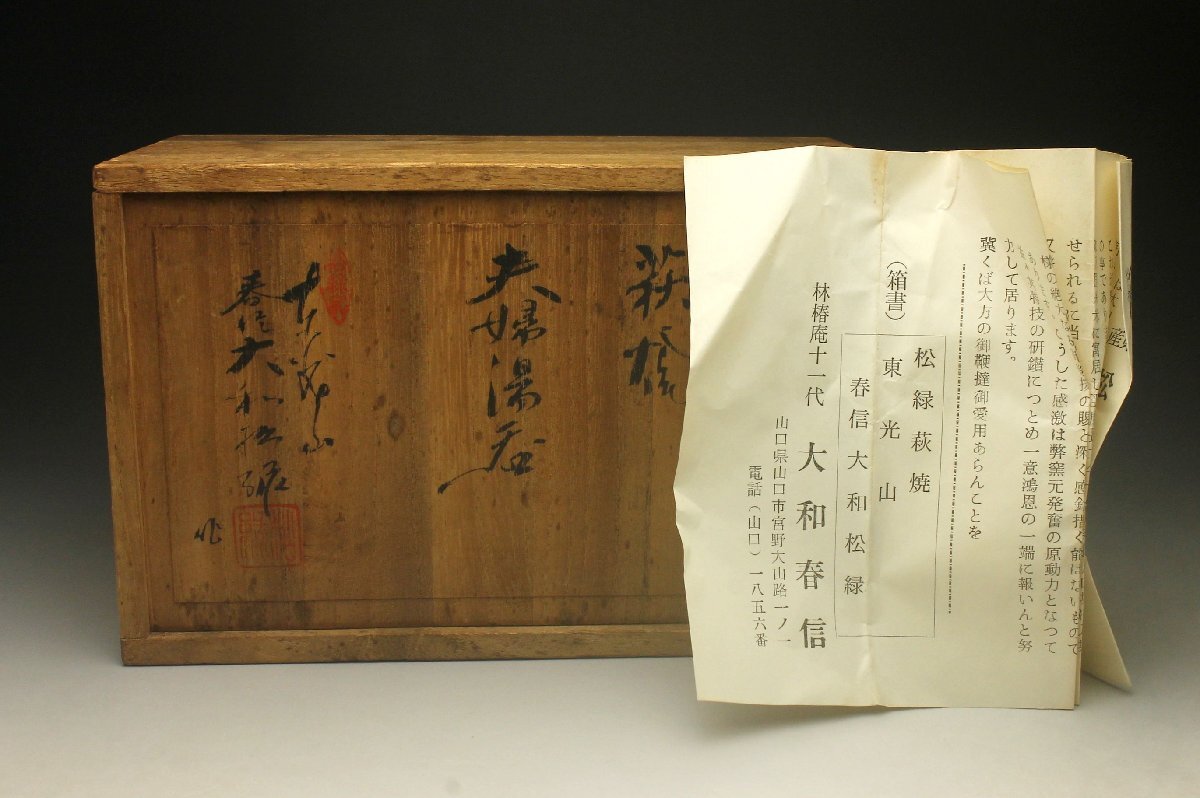 萩焼
夫婦湯呑
東光山
春信大和松緑
作
せられるに当
うした感激は弊窯元発奮の原動力となつて
技の研鑽につとめ一意鴻恩の一端に報いんと努
力して居ります。
冀くば大方の御鞭撻御愛用あらんことを
（箱書）
松緑萩焼
東光山
春信大和松緑
林椿庵十一代 大和春信
山口県山口市宮野大山路一ノ一
電話（山口）一八五六番